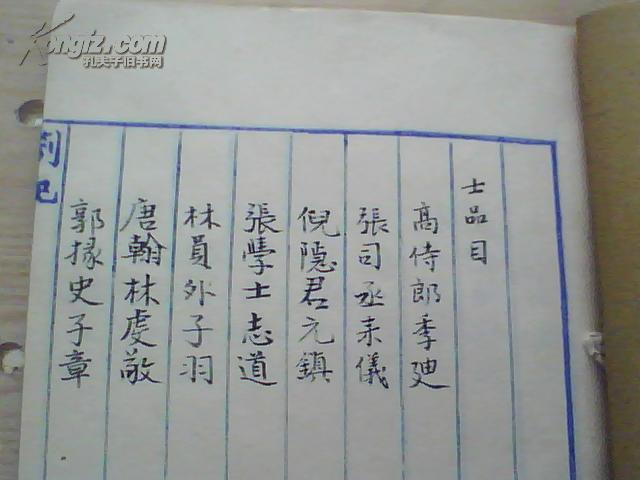 士品目
高侍郎季迪
張司丞来儀
倪隠君元鎮
張學士志道
林員外子羽
唐翰林虔敬
郭掾史子章
劄記
Kongfz.com
孔夫子旧书网